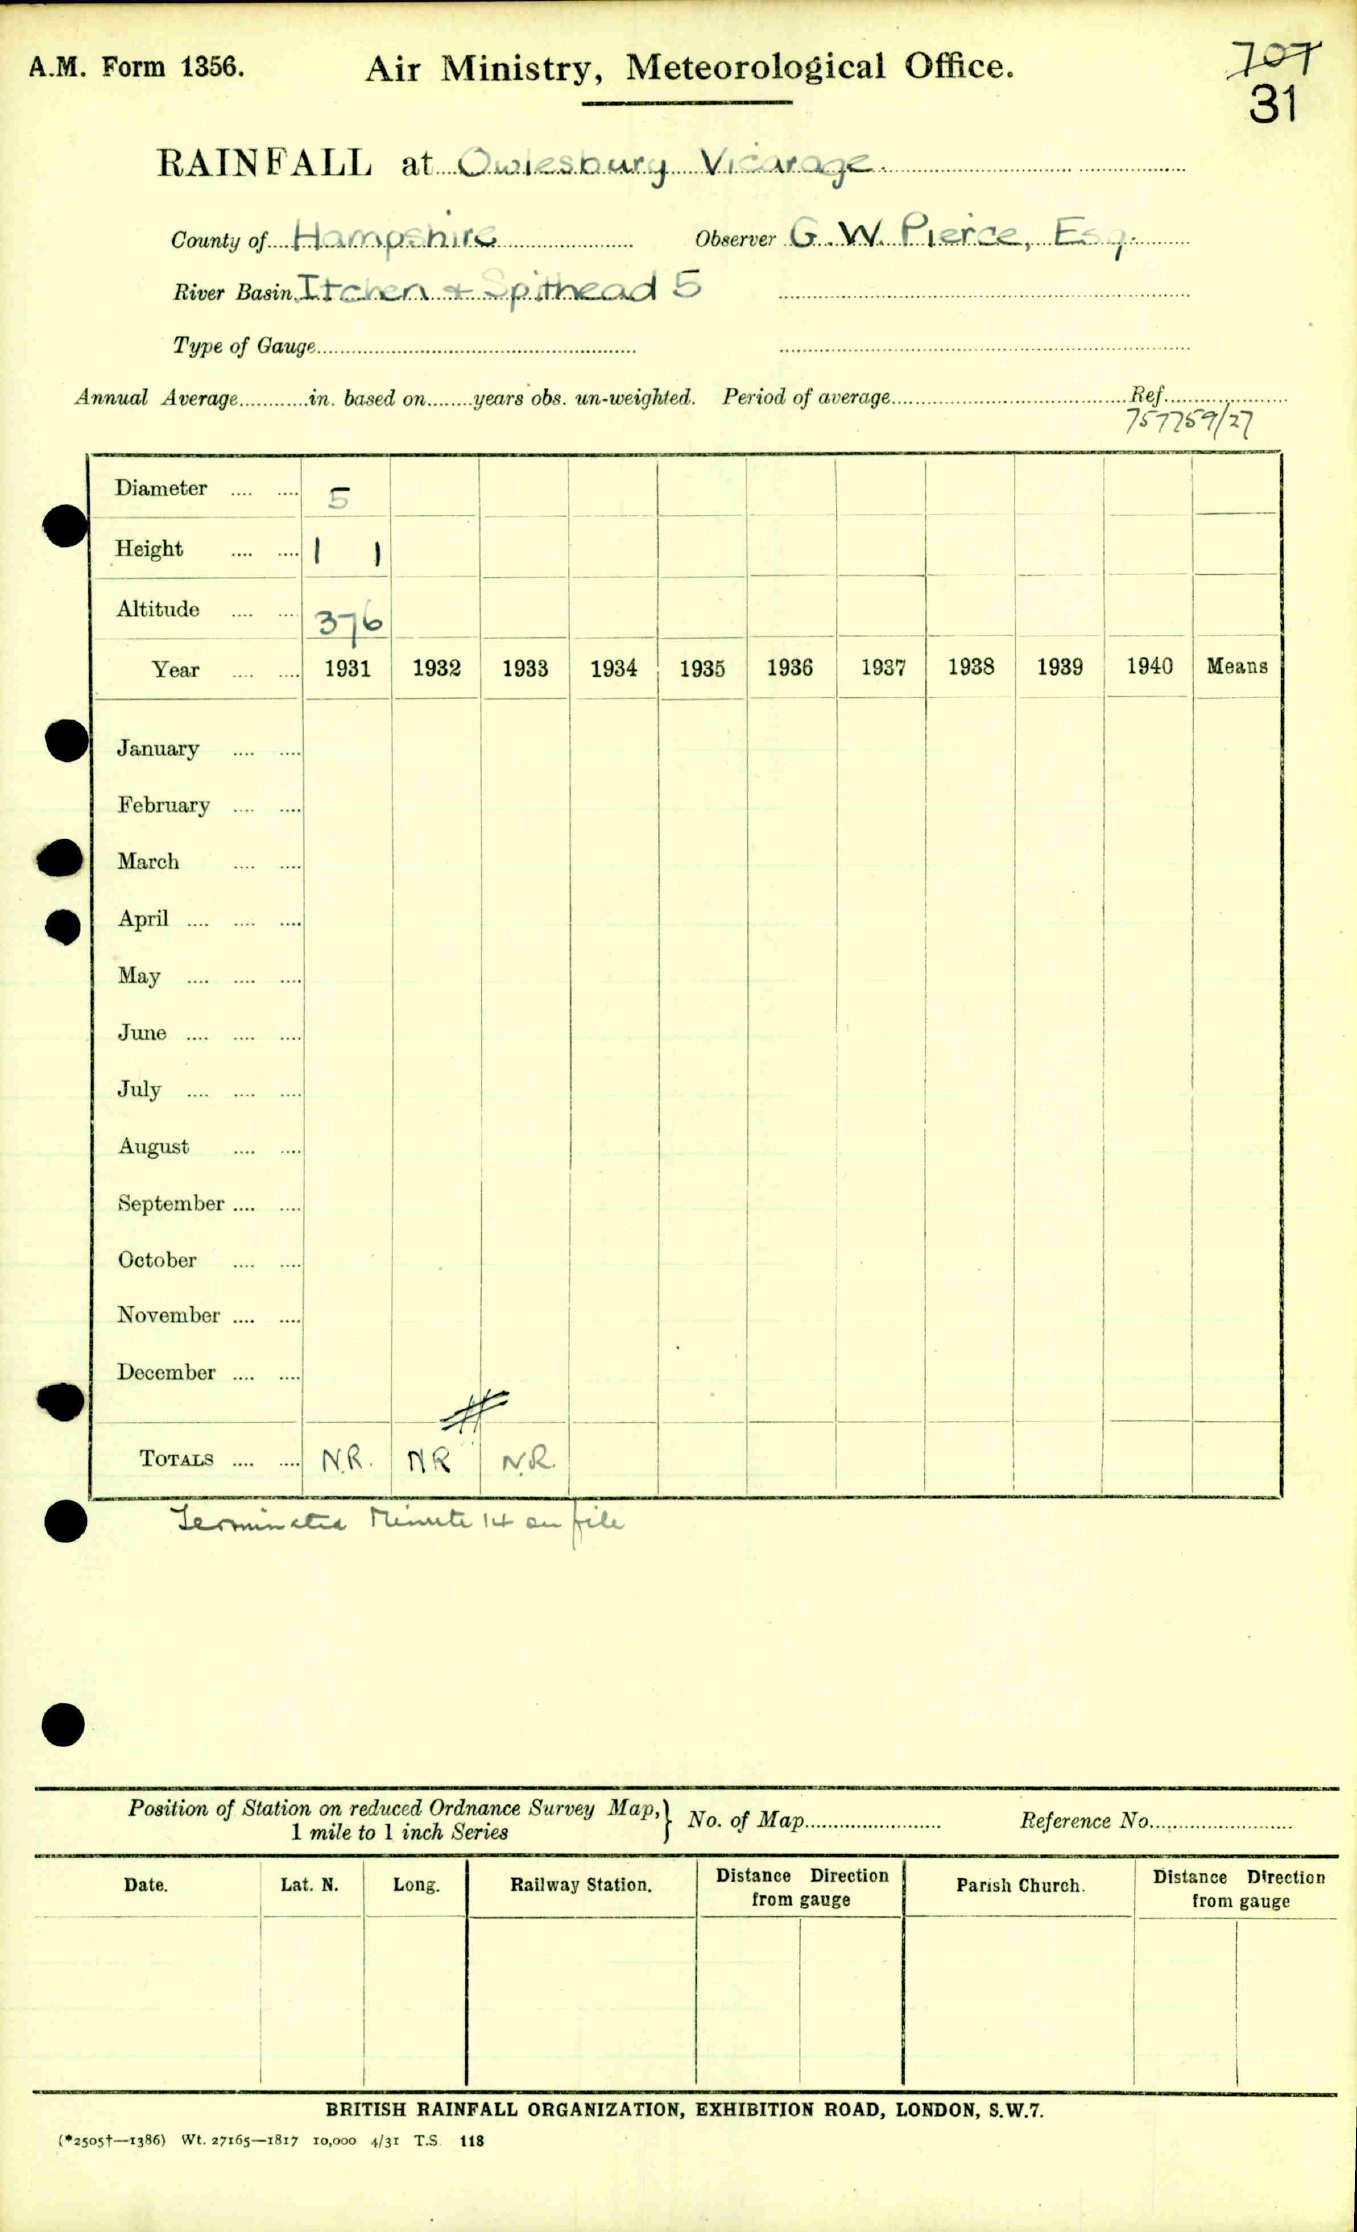 A.M. Form 1356. Air Ministry, Meteorological Office. 707
31
RAINFALL at Owlesbury Vicarage
County of Hampshire Observer G. W. Pierce, Esq.
River Basin Itchen + Spithead 5
Type of Gauge
Annual Average in. based on years obs. un-weighted. Period of average Ref.
757759/27
Diameter 5
Height 1 1
Altitude 376
Year 1931 1932 1933 1934 1935 1936 1937 1938 1939 1940 Means
January
February
March
April
May
June
July
August
September
October
November
December
TOTALS N.R. NR N.R.
Terminated Minute 14 on file
Position of Station on reduced Ordnance Survey Map,} No. of Map Reference No.
1 mile to 1 inch Series
Date. Lat. N. Long. Railway Station. Distance Direction from gauge Parish Church. Distance Direction from gauge
BRITISH RAINFALL ORGANIZATION, EXHIBITION ROAD, LONDON, S.W.7.
(*2505†—1386) Wt. 27165—1817 10,000 4/31 T.S. 118